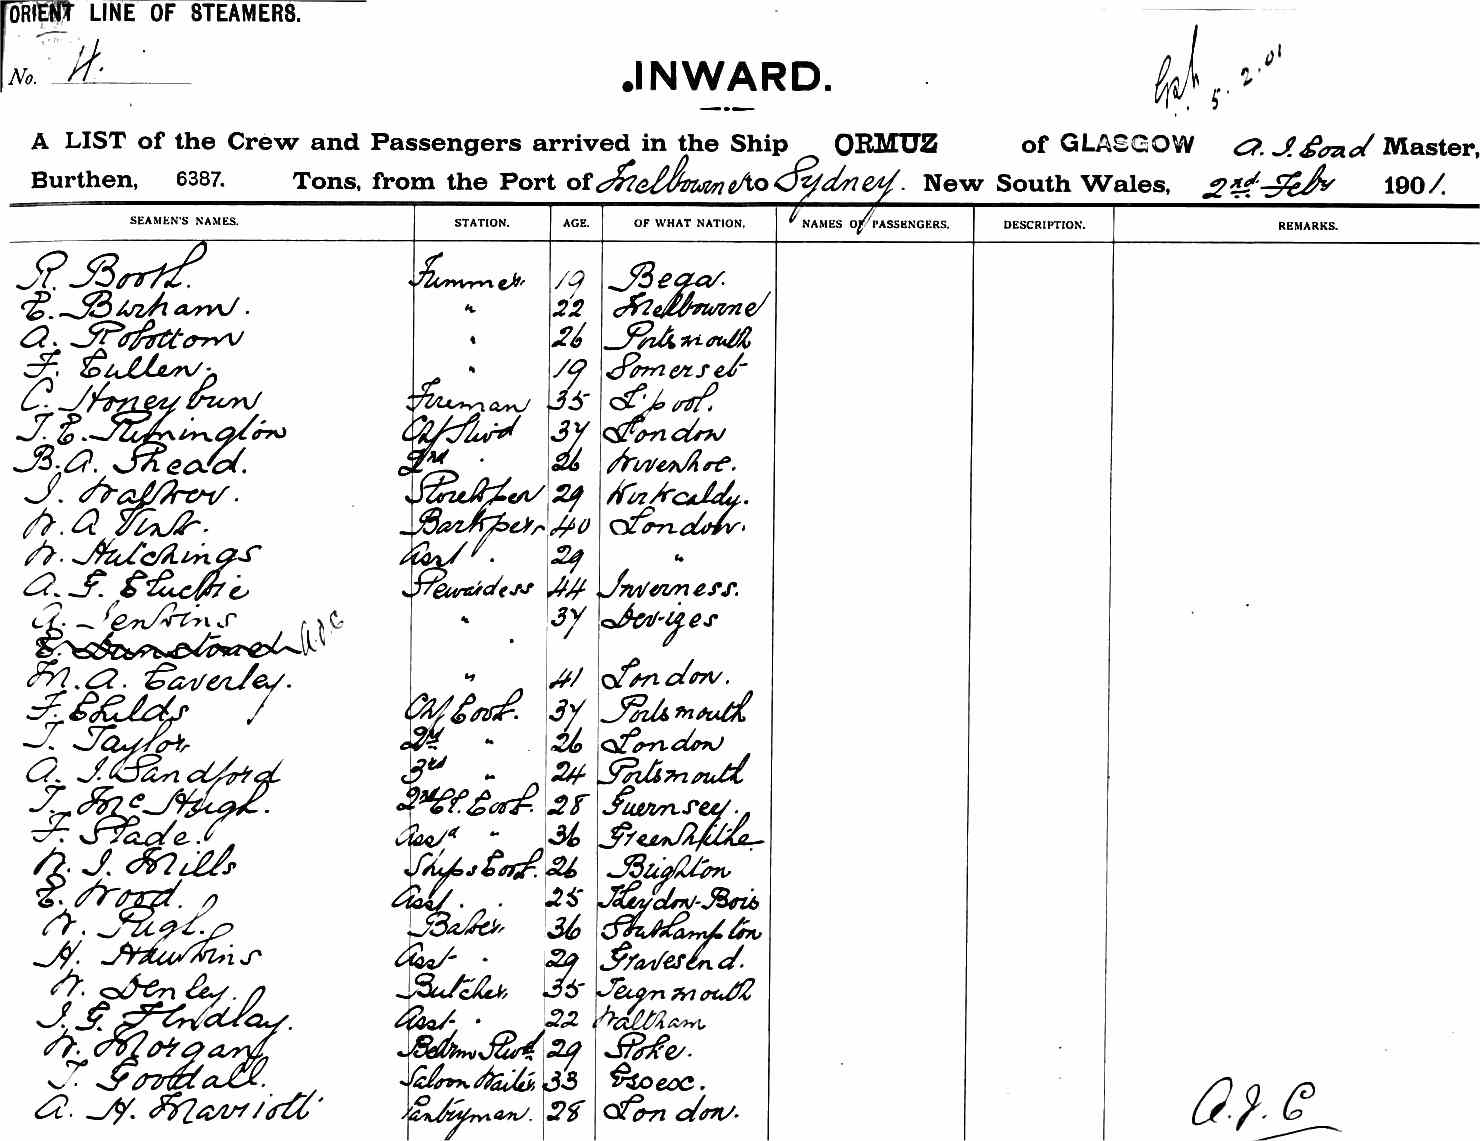 ORIENT LINE OF STEAMERS.
No. 4.
.INWARD.
5.2.01
A LIST of the Crew and Passengers arrived in the Ship ORMUZ of GLASGOW A. J. Coad Master,
Burthen, 6387. Tons, from the Port of Melbourne to Sydney. New South Wales, 2nd Feby 1901.
SEAMEN'S NAMES. STATION. AGE. OF WHAT NATION. NAMES OF PASSENGERS. DESCRIPTION. REMARKS.
R. Booth. Trimmer 19 Bega.
E. Burham. " 22 Melbourne
A. Robottom " 26 Portsmouth
F. Cullen. " 19 Somerset
C. Honeybun Fireman 35 L'pool.
T. E. Rimington Chf Stwd 37 London
B. A. Shead. 2nd " 26 Wivenhoe.
J. Walker. Storekper 29 Kirkcaldy.
W. A Tink. Barkper 40 London.
W. Hutchings Asst " 29 "
A. G. Stewardess 44 Inverness.
A. Jenkins " 37 Devizes
E. A.J.C "
M. A. Caverley. " 41 London.
F. Childs Chf Cook. 37 Portsmouth
T. Taylor 2nd " 26 London
A. J. Sandford 3rd " 24 Portsmouth
T. McHugh. 2nd Cl. Cook. 28 Guernsey.
F. Slade. Asst " 36 Greenhithe
W. J. Mills Ships Cook. 26 Brighton
E. Wood. Asst. " 25 Theydon-Bois
W. Pugh. Baker 36 Southampton
H. Hawkins Asst " 29 Gravesend.
W. Denley. Butcher 35 Teignmouth
J. G. Findlay. Asst " 22 Waltham
W. Morgan Bedrm Stwd 29 Stoke.
T. Goodall. Saloon Waiter 33 Essex.
A. H. Marriott Pantryman. 28 London.
A.J. C